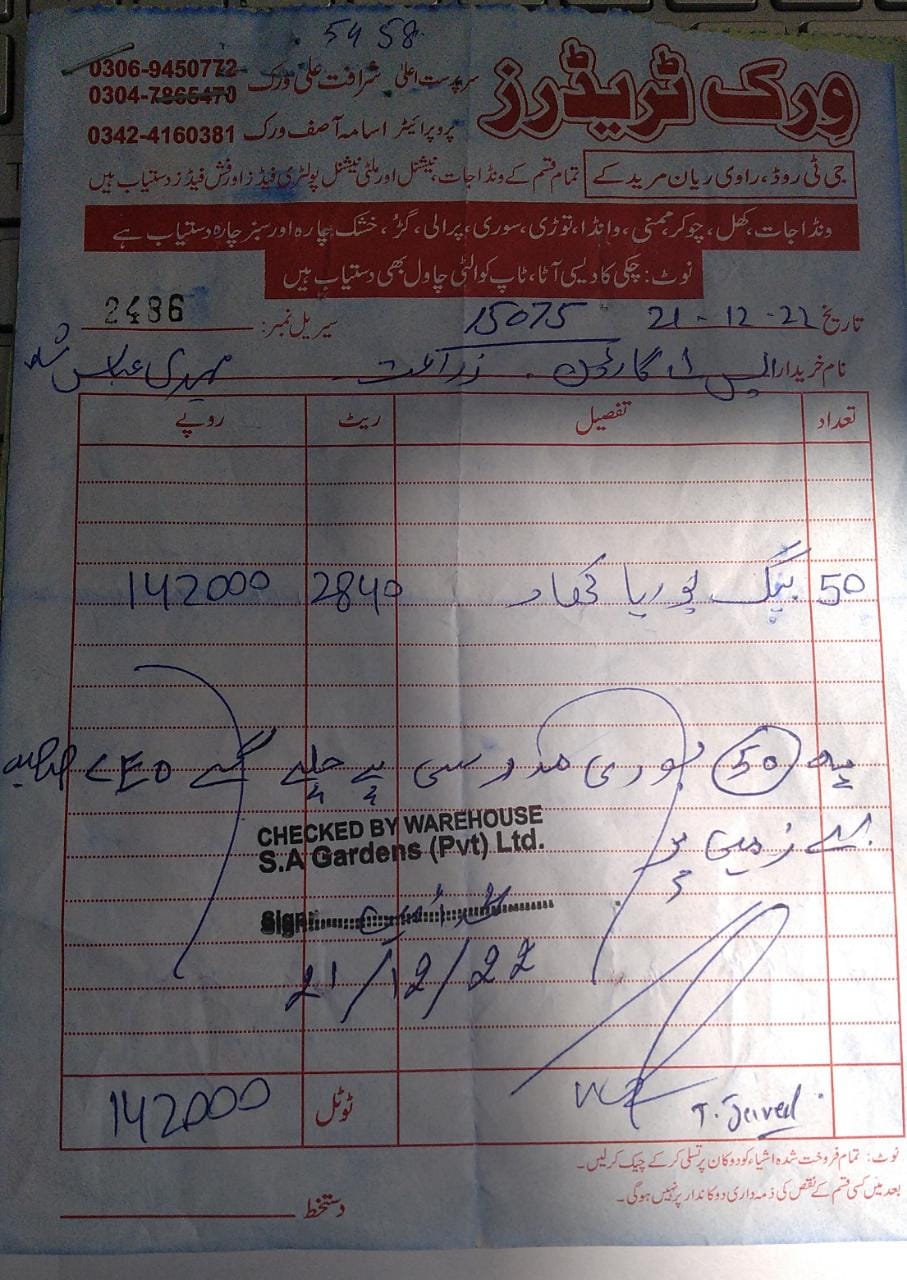 5458
ورک ٹریڈرز
سرپرست اعلیٰ شرافت علی ورک 0306-9450772
0304-7866470
پروپرائیٹر اسامہ آصف ورک 0342-4160381
جی ٹی روڈ، راوی ریان مریدکے تمام قسم کے ونڈا جات، نیشنل اور ملٹی نیشنل پولٹری فیڈز اور فش فیڈز دستیاب ہیں
ونڈا جات، کھل، چوکر، ممنی، وانڈا، توڑی، سوری، پرالی، گڑ، خشک چارہ اور سبز چارہ دستیاب ہے
نوٹ: چکی کا دیسی آٹا، ٹاپ کوالٹی چاول بھی دستیاب ہیں
تاریخ 21-12-22 15075 سیریل نمبر: 2486
نام خریدار ایس اے گارڈن۔ زراعت مہدی عباس شاہ
تعداد تفصیل ریٹ روپے
50 بیگ یوریا کھاد 2840 142000
یہ 50 بوری مدر سی پے چلے گئے CEO
زمین پر
CHECKED BY WAREHOUSE
S.A Gardens (Pvt) Ltd.
Sign:
21/12/22
T. Javed
ٹوٹل 142000
نوٹ: تمام فروخت شدہ اشیاء کو دوکان پر تسلی کر کے چیک کر لیں۔
بعد میں کسی قسم کے نقص کی ذمہ داری دوکاندار پر نہیں ہوگی۔
دستخط